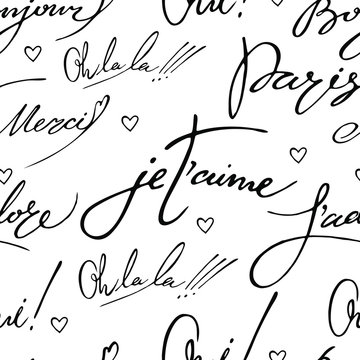 onjour
Oui!
Bo
Oh la la!!!
Paris
Merci
je t'aime
dore
J'ad
Oh la la!!!
ui!
Oui!
Ou